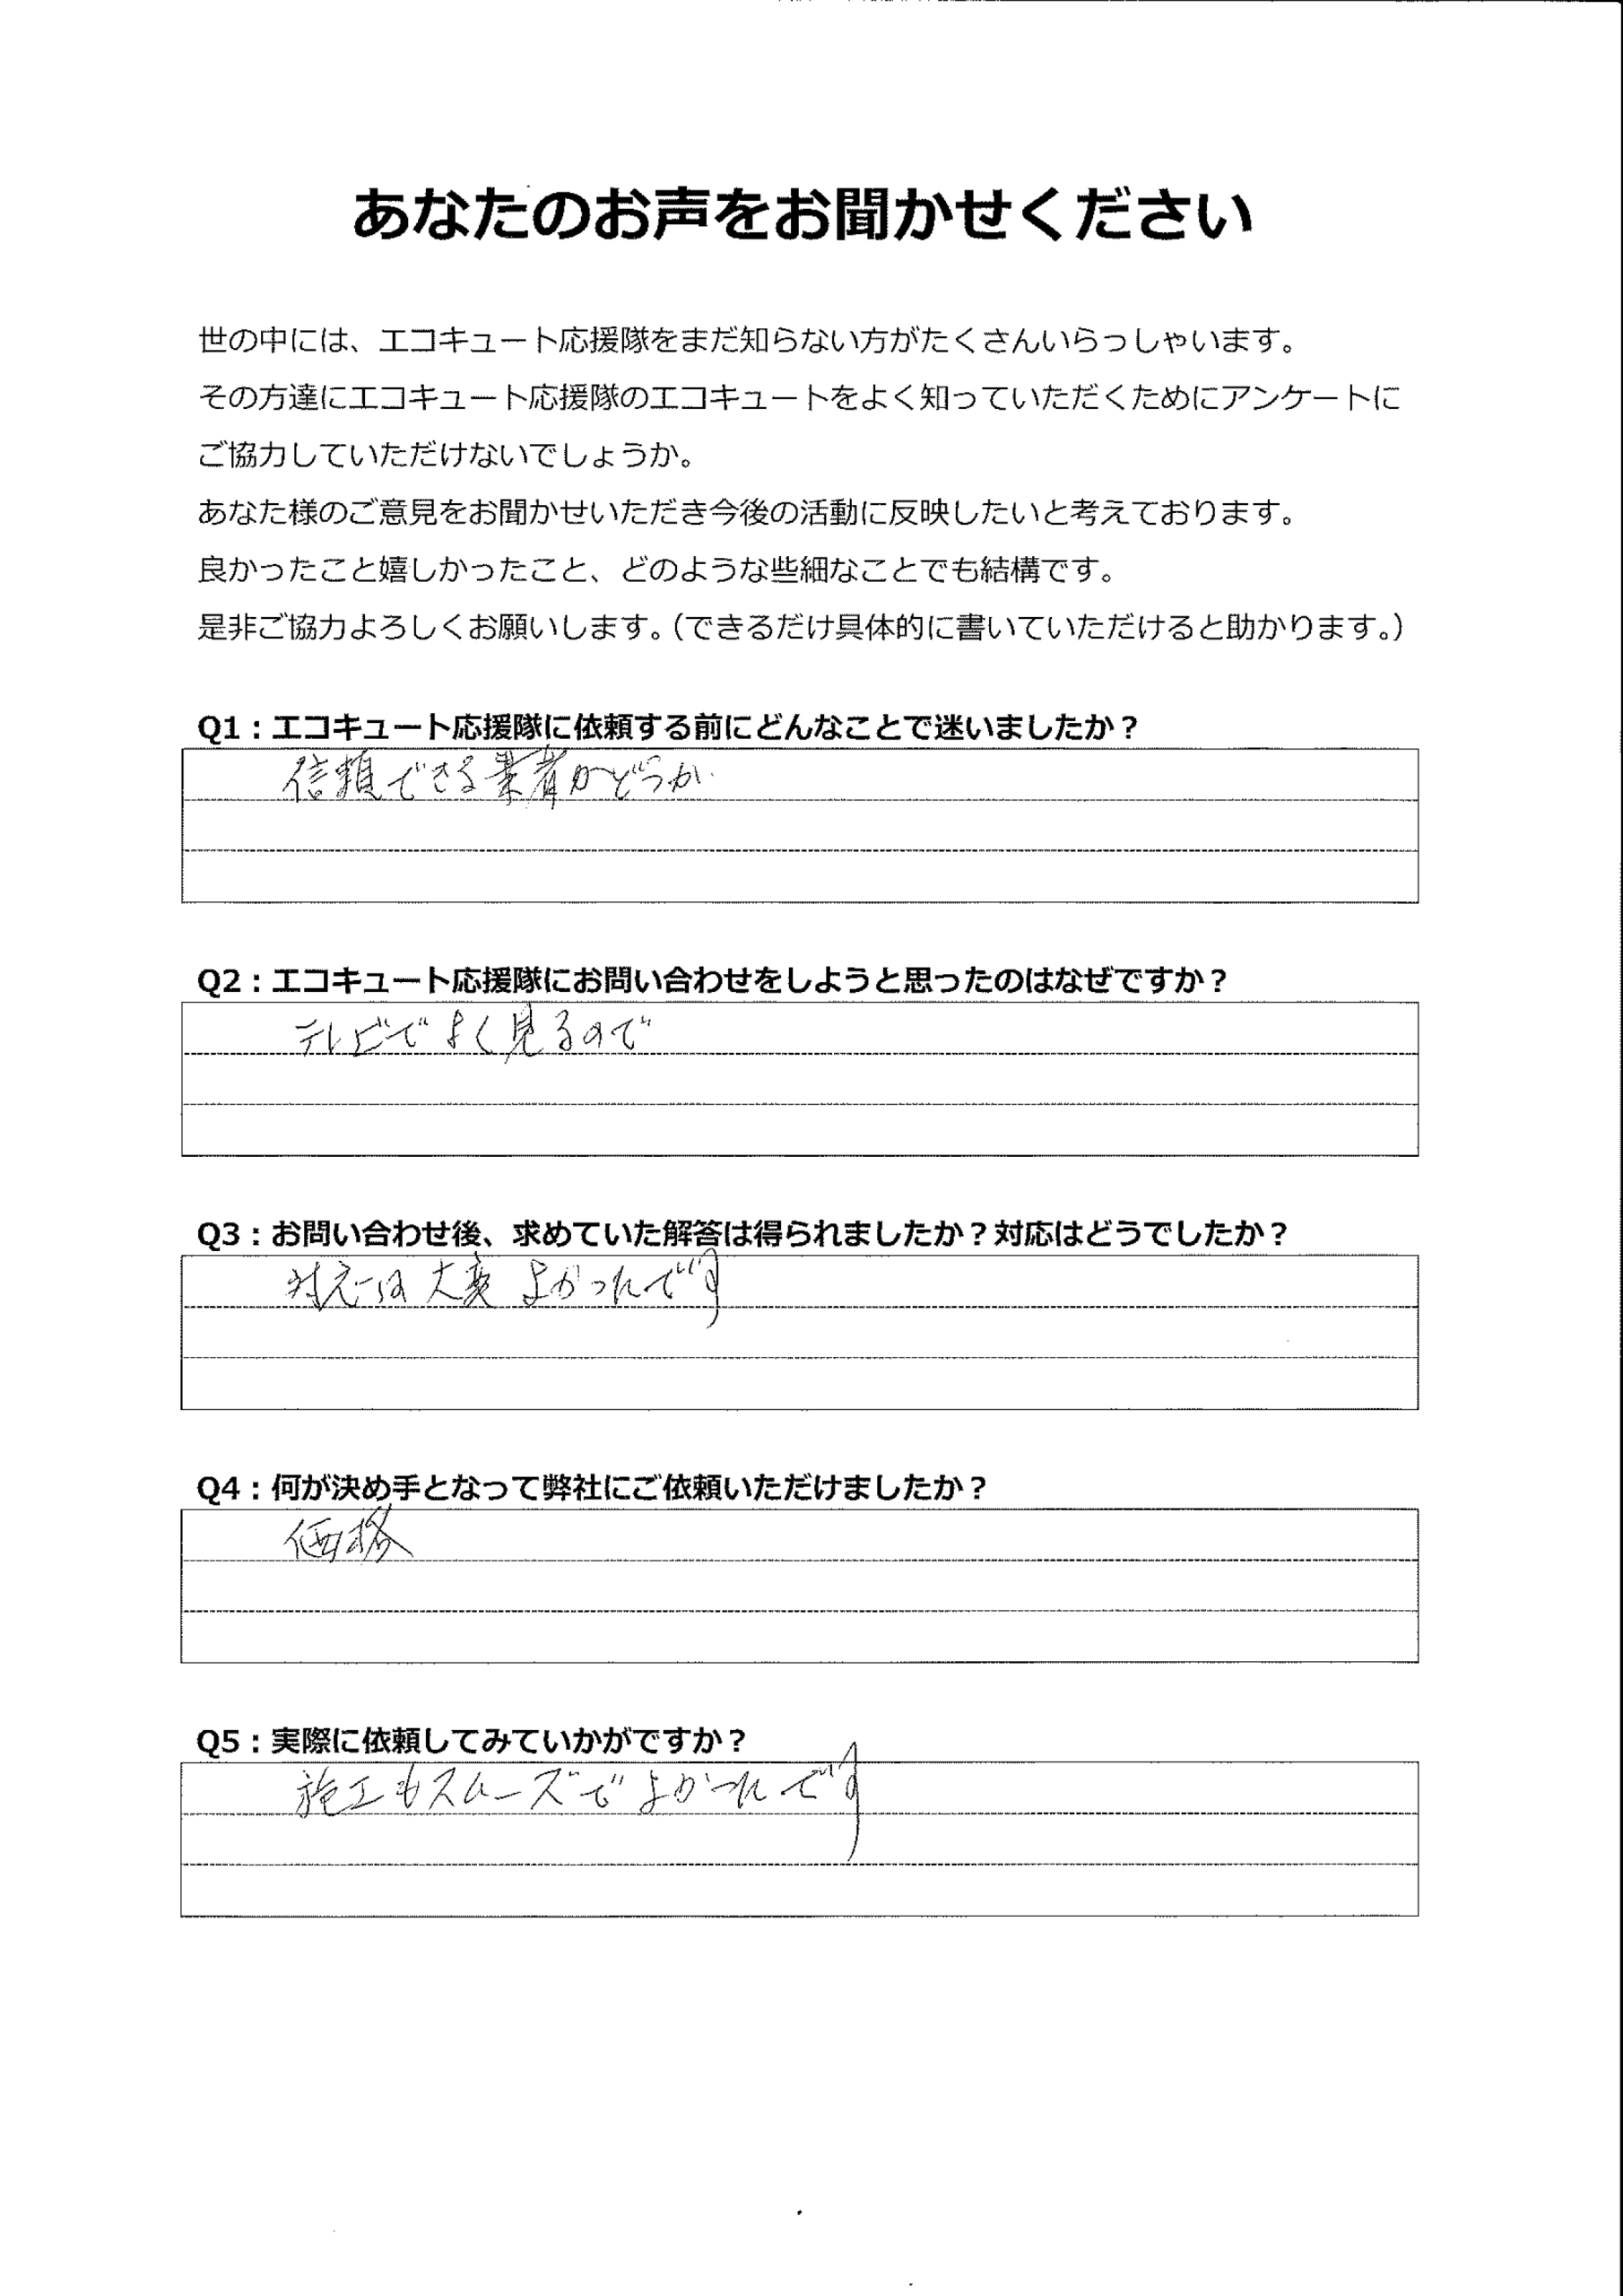 あなたのお声をお聞かせください
世の中には、エコキュート応援隊をまだ知らない方がたくさんいらっしゃいます。
その方達にエコキュート応援隊のエコキュートをよく知っていただくためにアンケートに
ご協力していただけないでしょうか。
あなた様のご意見をお聞かせいただき今後の活動に反映したいと考えております。
良かったこと嬉しかったこと、どのような些細なことでも結構です。
是非ご協力よろしくお願いします。（できるだけ具体的に書いていただけると助かります。）
Q1：エコキュート応援隊に依頼する前にどんなことで迷いましたか？
信頼できる業者かどうか
Q2：エコキュート応援隊にお問い合わせをしようと思ったのはなぜですか？
テレビでよく見るので
Q3：お問い合わせ後、求めていた解答は得られましたか？対応はどうでしたか？
対応は大変よかったです
Q4：何が決め手となって弊社にご依頼いただけましたか？
価格
Q5：実際に依頼してみていかがですか？
施工もスムーズでよかったです